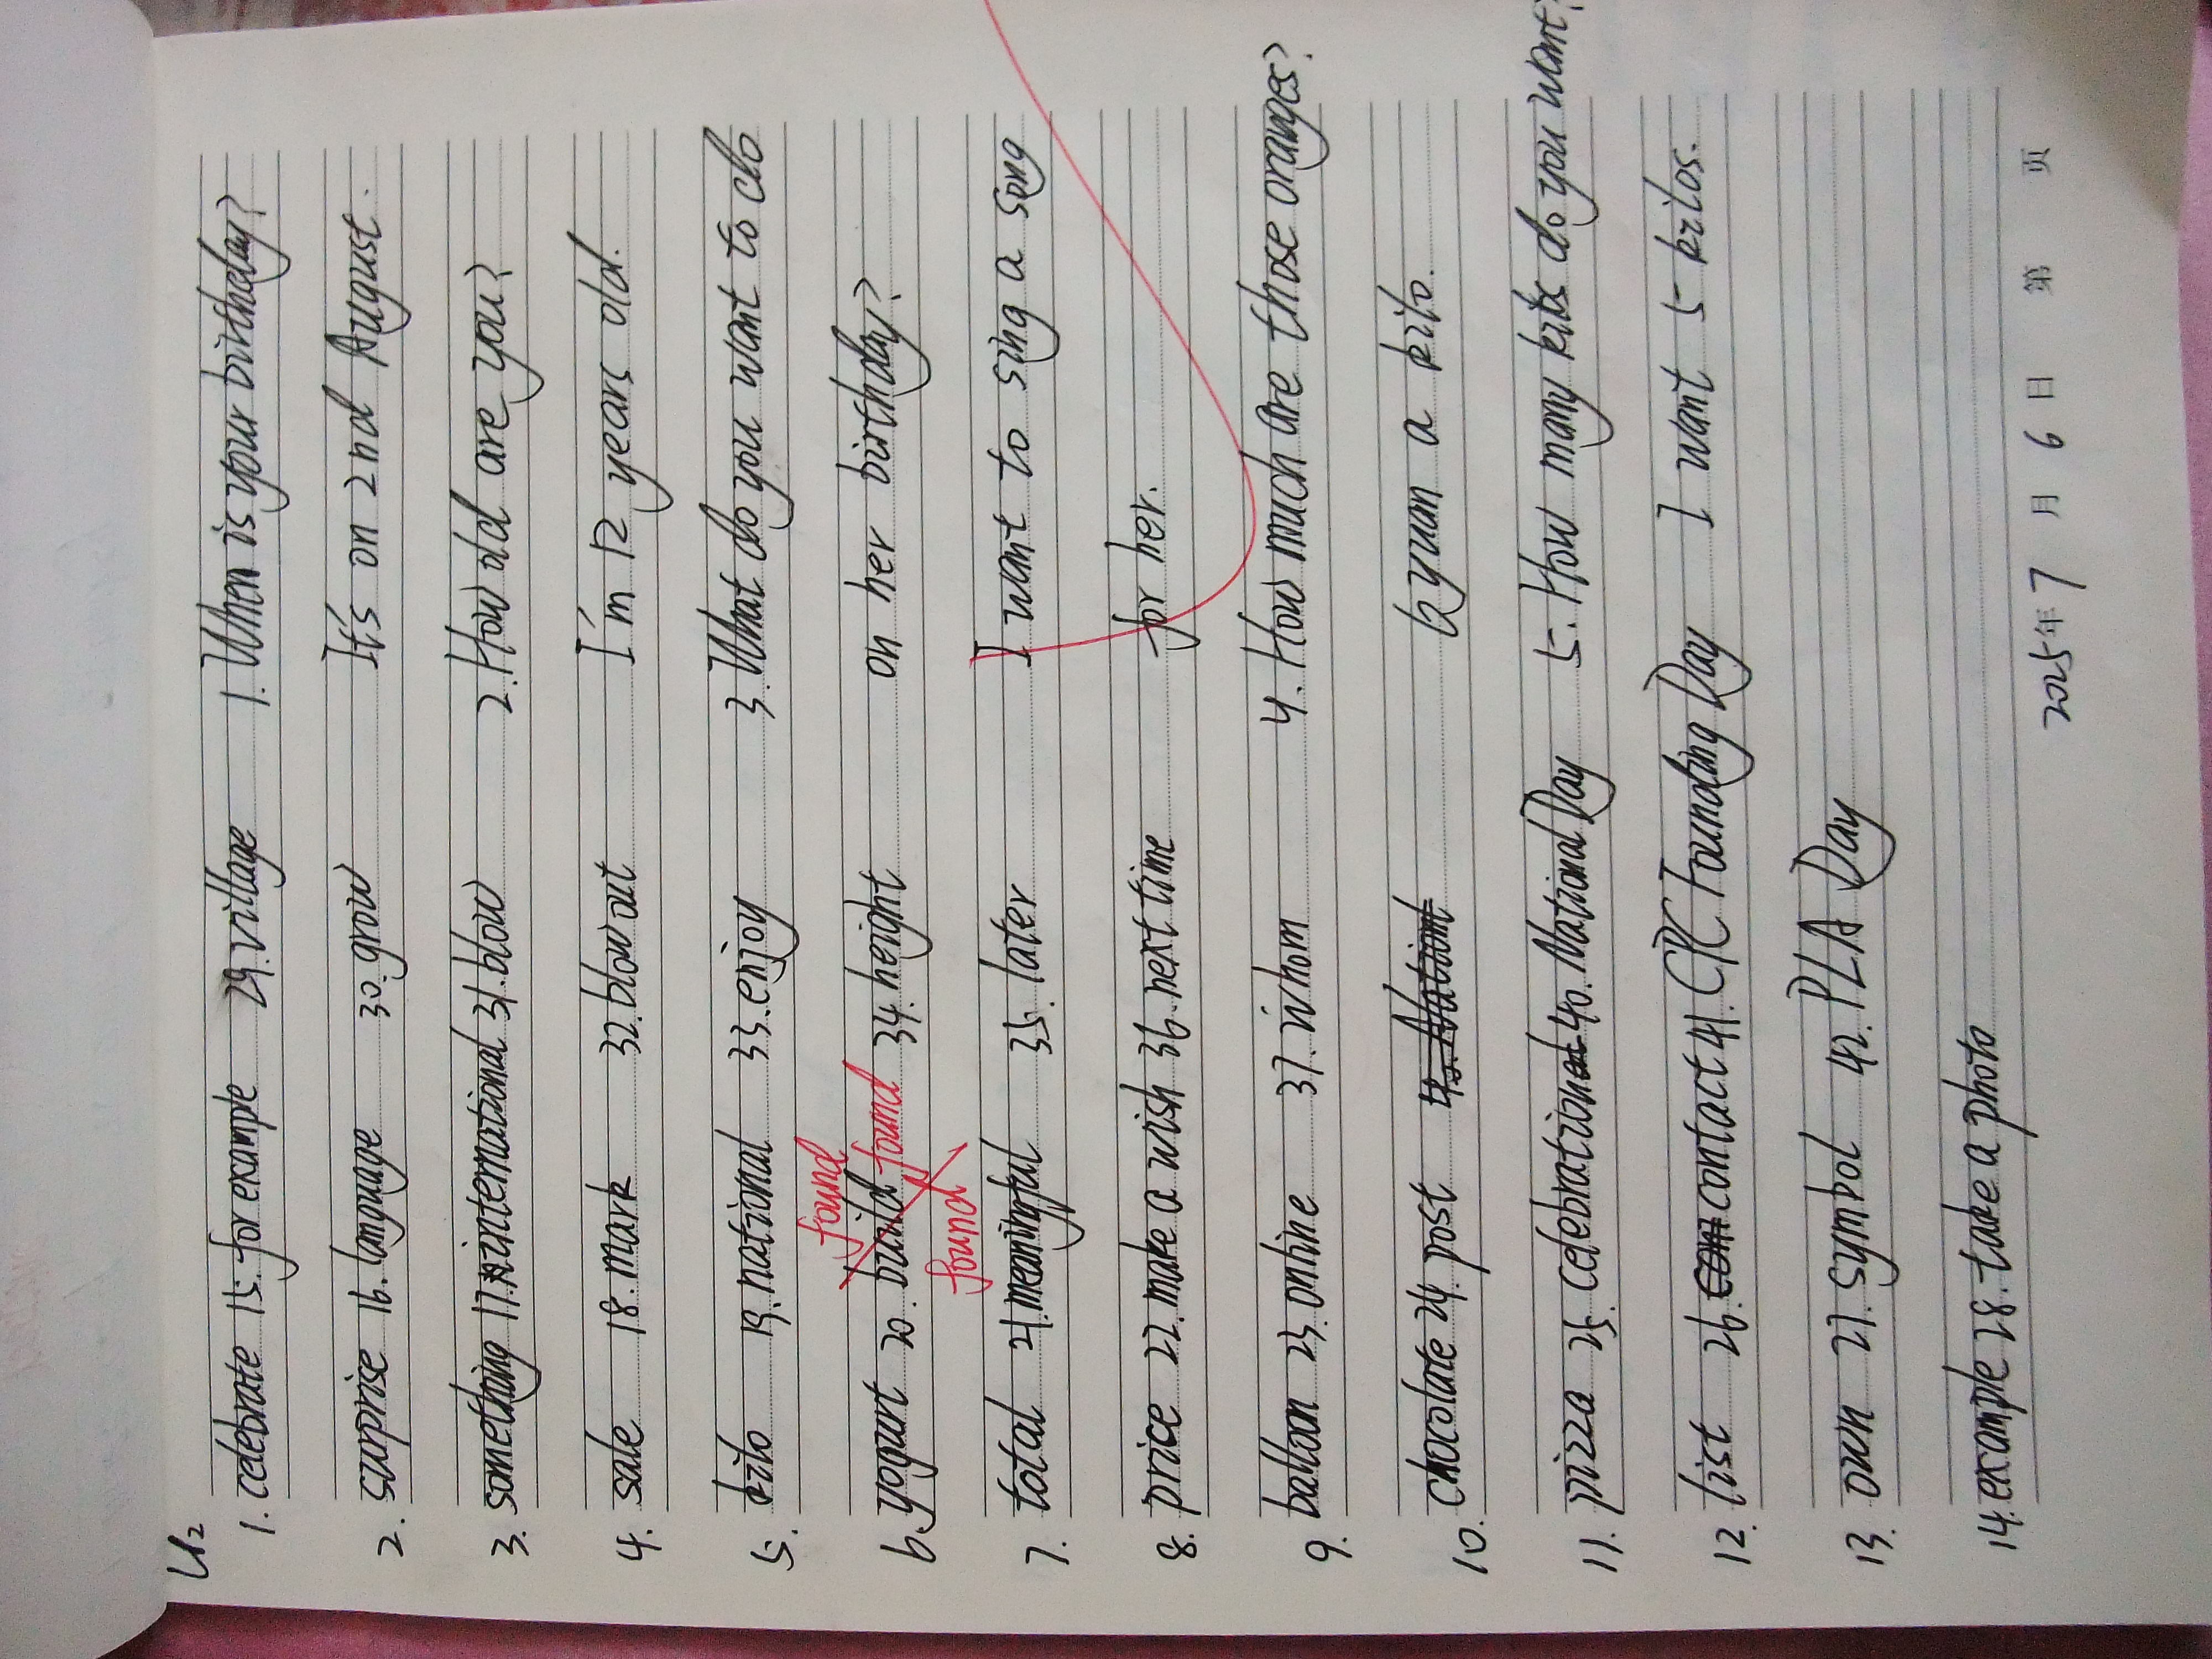 U2
1. celebrate 15. for example 29. village 1. When is your birthday?
2. surprise 16. language 30. grow It's on 2nd August.
3. something 17. international 31. blow 2. How old are you?
4. sale 18. mark 32. blow out I'm 12 years old.
5. kilo 19. national 33. enjoy 3. What do you want to do
found
6. yogurt 20. build found 34. height on her birthday?
found
7. total 21. meaningful 35. later I want to sing a song
8. price 22. make a wish 36. next time for her.
9. balloon 23. online 37. whom 4. How much are those oranges?
10. chocolate 24. post 6 yuan a kilo.
11. pizza 25. celebration 40. National Day 5. How many do you want?
12. list 26. contact 41. CPC Founding Day I want 5 kilos.
13. own 27. symbol 42. PLA Day
14. example 28. take a photo
2025年7月6日 第 页